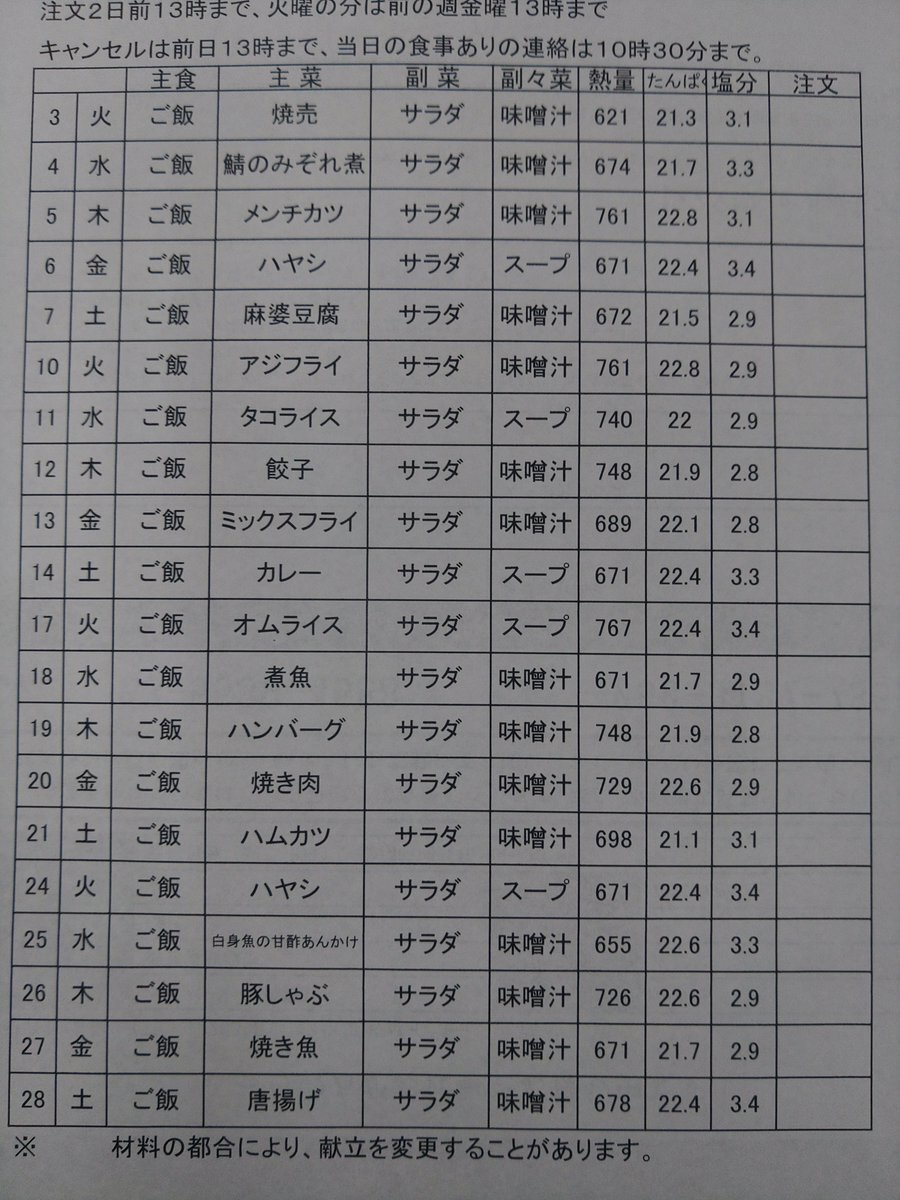 注文2日前13時まで、火曜の分は前の週金曜13時まで
キャンセルは前日13時まで、当日の食事ありの連絡は10時30分まで。
主食 主菜 副菜 副々菜 熱量 たんぱく 塩分 注文
3 火 ご飯 焼売 サラダ 味噌汁 621 21.3 3.1
4 水 ご飯 鯖のみぞれ煮 サラダ 味噌汁 674 21.7 3.3
5 木 ご飯 メンチカツ サラダ 味噌汁 761 22.8 3.1
6 金 ご飯 ハヤシ サラダ スープ 671 22.4 3.4
7 土 ご飯 麻婆豆腐 サラダ 味噌汁 672 21.5 2.9
10 火 ご飯 アジフライ サラダ 味噌汁 761 22.8 2.9
11 水 ご飯 タコライス サラダ スープ 740 22 2.9
12 木 ご飯 餃子 サラダ 味噌汁 748 21.9 2.8
13 金 ご飯 ミックスフライ サラダ 味噌汁 689 22.1 2.8
14 土 ご飯 カレー サラダ スープ 671 22.4 3.3
17 火 ご飯 オムライス サラダ スープ 767 22.4 3.4
18 水 ご飯 煮魚 サラダ 味噌汁 671 21.7 2.9
19 木 ご飯 ハンバーグ サラダ 味噌汁 748 21.9 2.8
20 金 ご飯 焼き肉 サラダ 味噌汁 729 22.6 2.9
21 土 ご飯 ハムカツ サラダ 味噌汁 698 21.1 3.1
24 火 ご飯 ハヤシ サラダ スープ 671 22.4 3.4
25 水 ご飯 白身魚の甘酢あんかけ サラダ 味噌汁 655 22.6 3.3
26 木 ご飯 豚しゃぶ サラダ 味噌汁 726 22.6 2.9
27 金 ご飯 焼き魚 サラダ 味噌汁 671 21.7 2.9
28 土 ご飯 唐揚げ サラダ 味噌汁 678 22.4 3.4
※ 材料の都合により、献立を変更することがあります。